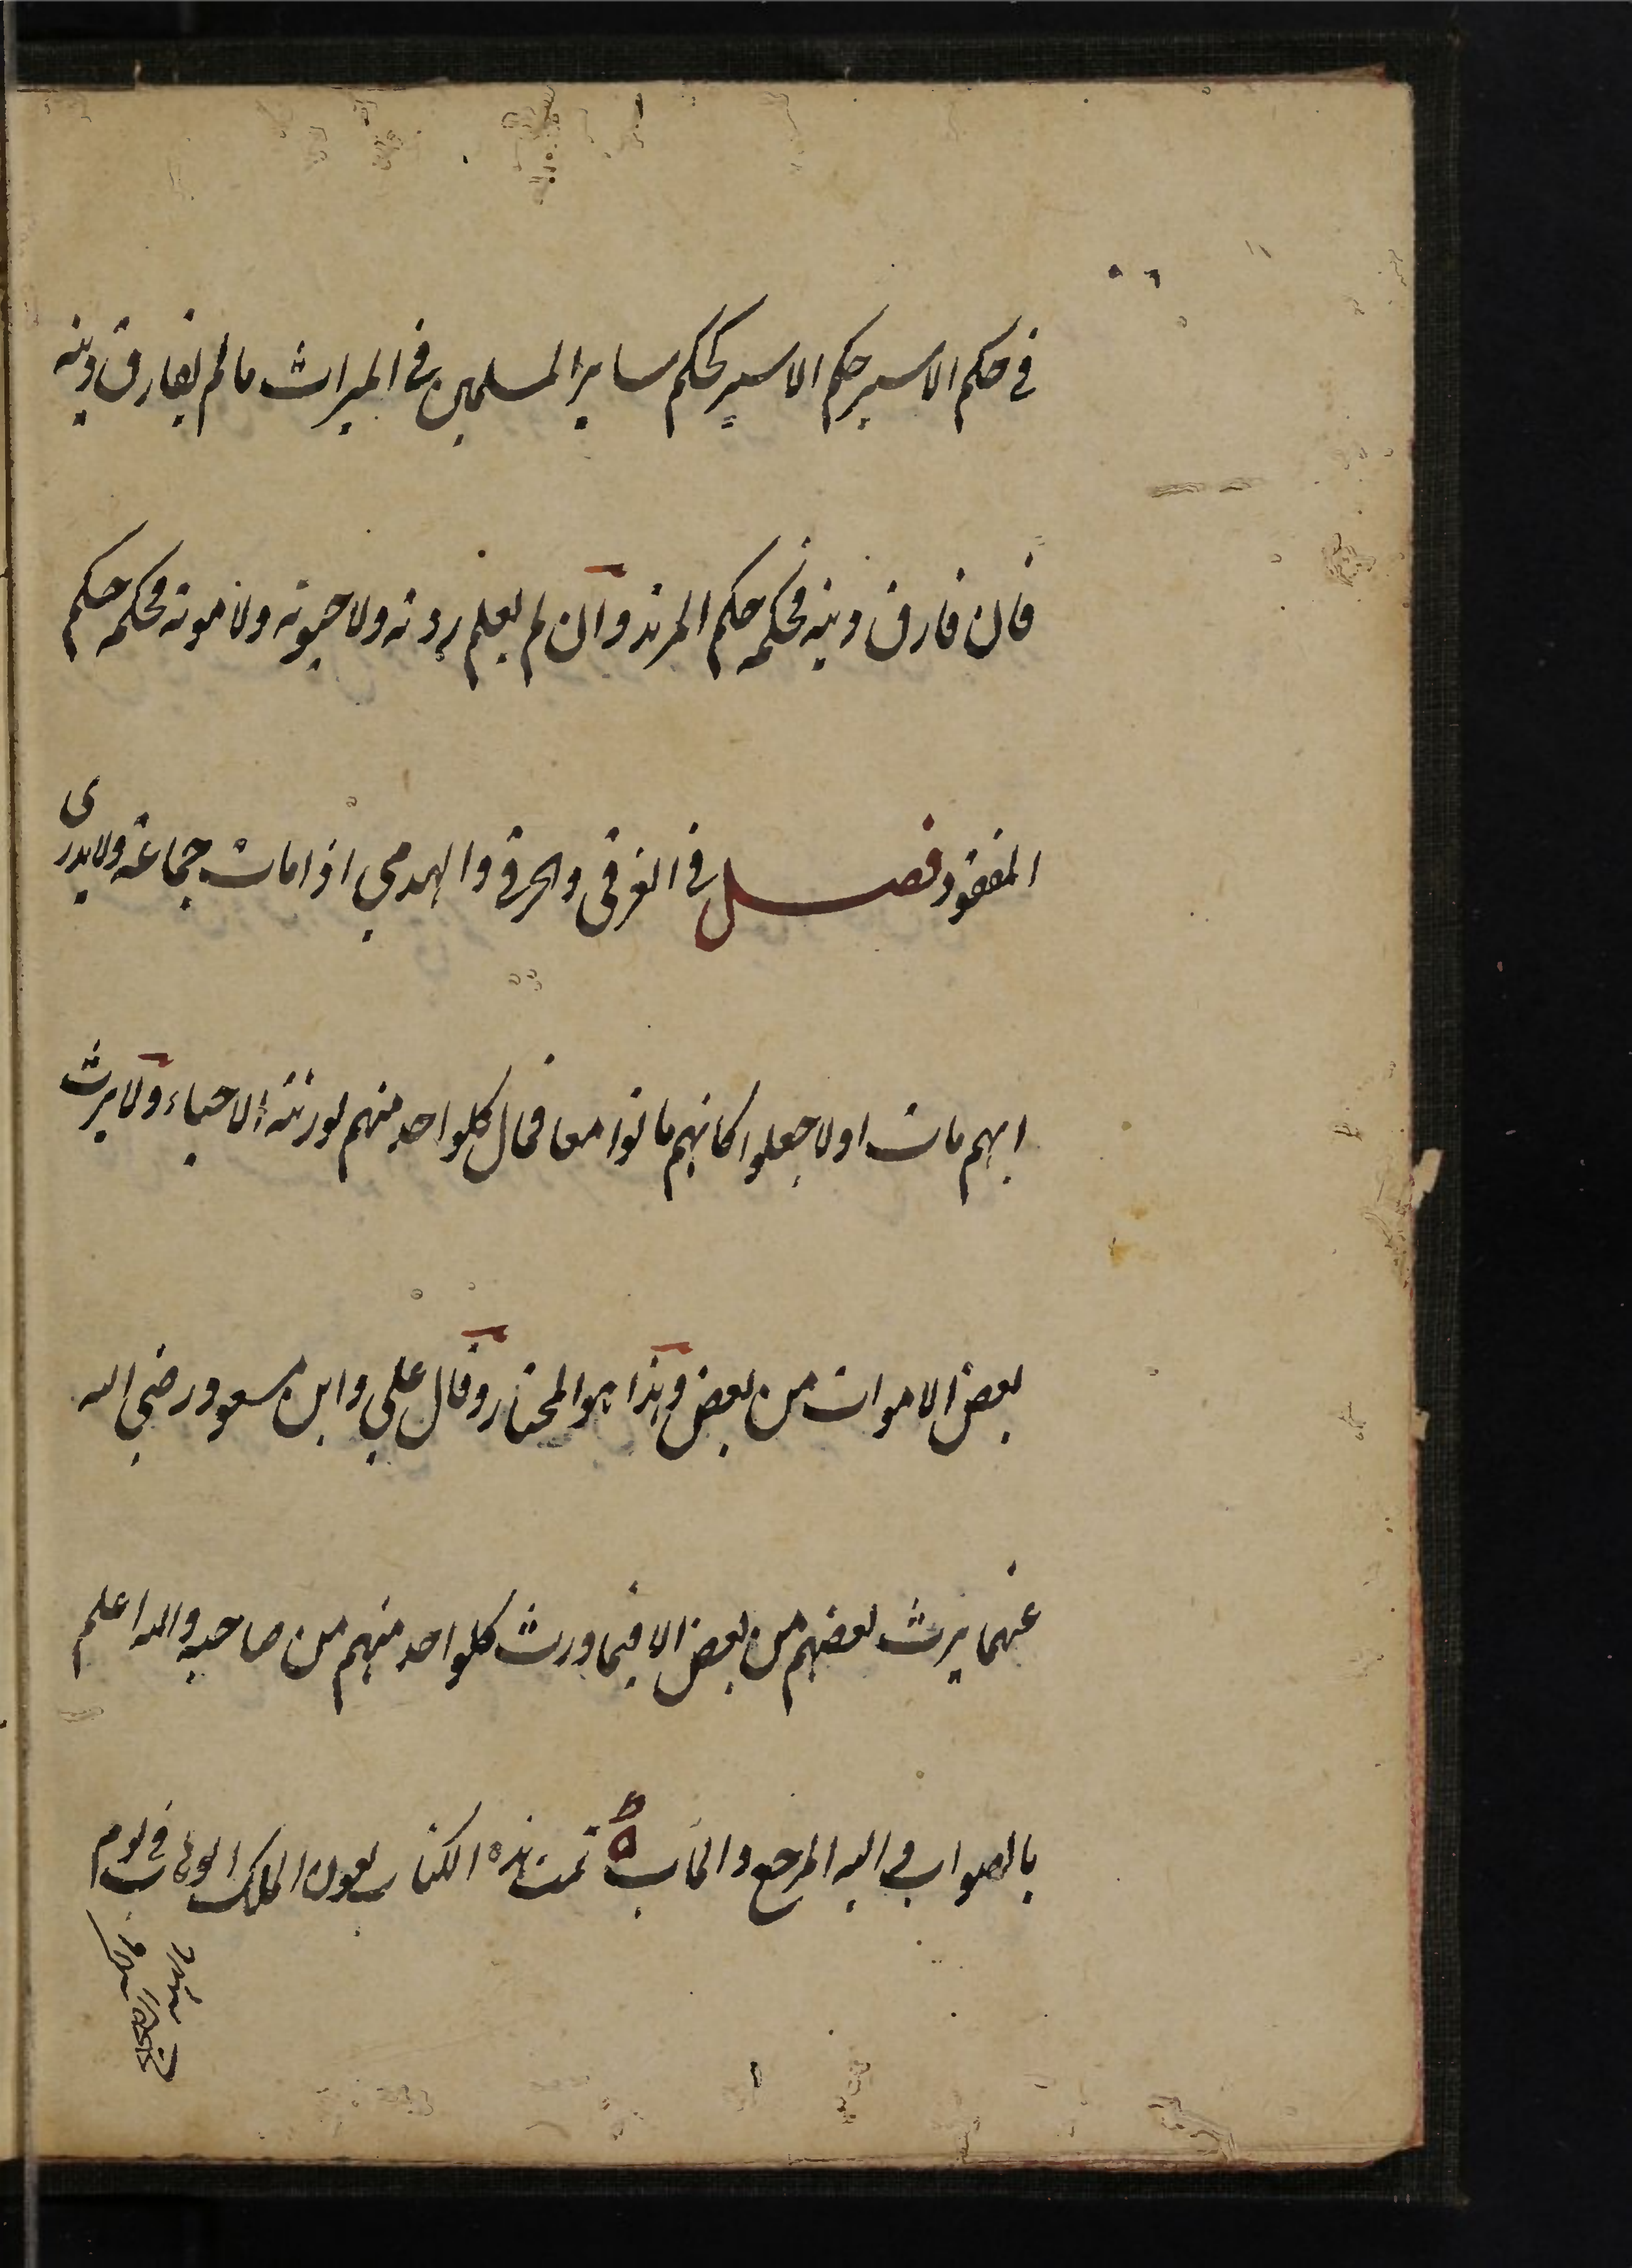 في حكم الاسير حكم الاسير كحكم ساير المسلمين في الميراث ما لم يفارق دينه
فان فارق دينه فحكمه حكم المرتد وان لم يعلم ردته ولا حيوته ولا موته فحكمه حكم
المفقود فصل في الغرقى والحرقى والهدمى اذا مات جماعة ولا يدرى
ايهم مات اولا جعلوا كانهم ماتوا معا فمال كلواحد منهم لورثته الاحياء ولا يرث
بعض الاموات من بعض وهذا هو المختار وقال علي وابن مسعود رضي الله
عنهما يرث بعضهم من بعض الا فيما ورث كلواحد منهم من صاحبه والله اعلم
بالصواب واليه المرجع والمآب تمت هذه الكتاب بعون الملك الوهاب في يوم